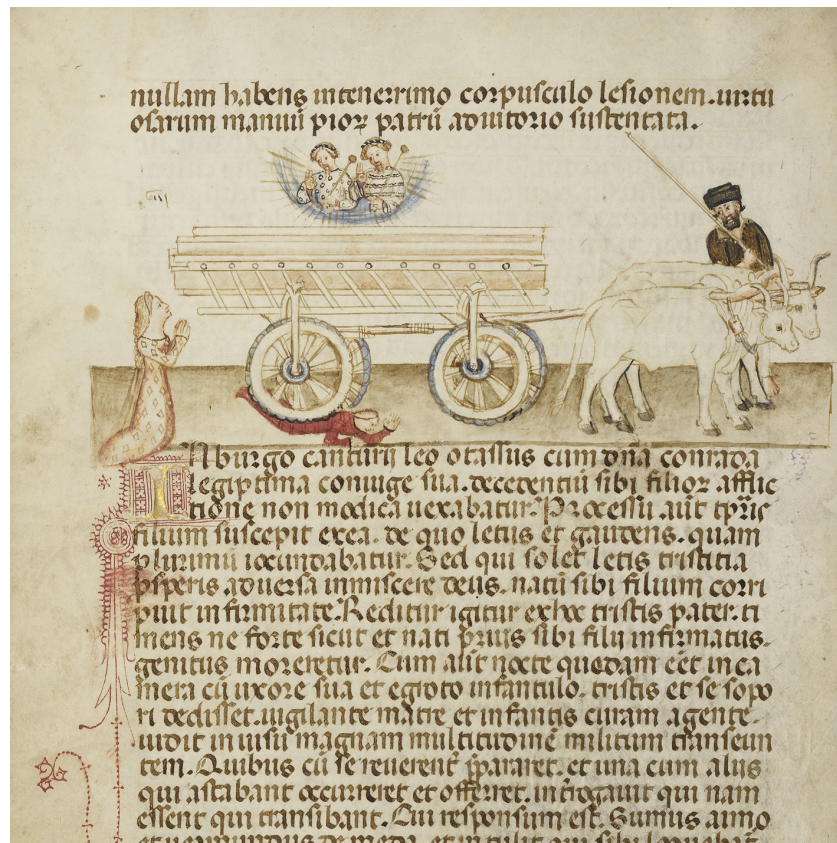 nullam habens in tenerrimo corpusculo lesionem. uirtu
osarum manuū pioꝝ patrū adiutorio sustentata.
IN burgo canturij leo otassus cum dn̄a conrada
legiptima coniuge sua. decedentiū sibi filioꝝ afflic
tione non modica uexabatur. Processu aut̄ tp̄ris
filium suscepit ex ea. de quo letus et gaudens. quam
plurimū iocundabatur. Sed qui solet letis tristitia
ꝓsperis aduersa inmiscere deus. natū sibi filium corri
puit infirmitate. Redditur igitur ex hoc tristis pater. ti
mens ne forte sicut et nati prius sibi filij infirmatus.
genitus moreretur. Cum alit̄ nocte quadam eēt in ca
mera cū uxore sua et egroto infantulo. tristis et se sopo
ri dedisset. uigilante matre et infantis curam agente.
uidit in uisū magnam multitudinē militum transeun
tem. Quibus cū se reuerent̄ p̄pararet. et una cum alijs
qui astabant occurreret et offerret. int̄rogauit qui nam
essent qui transibant. Cui responsum est. Sumus aimo
et uermundus de meda. et